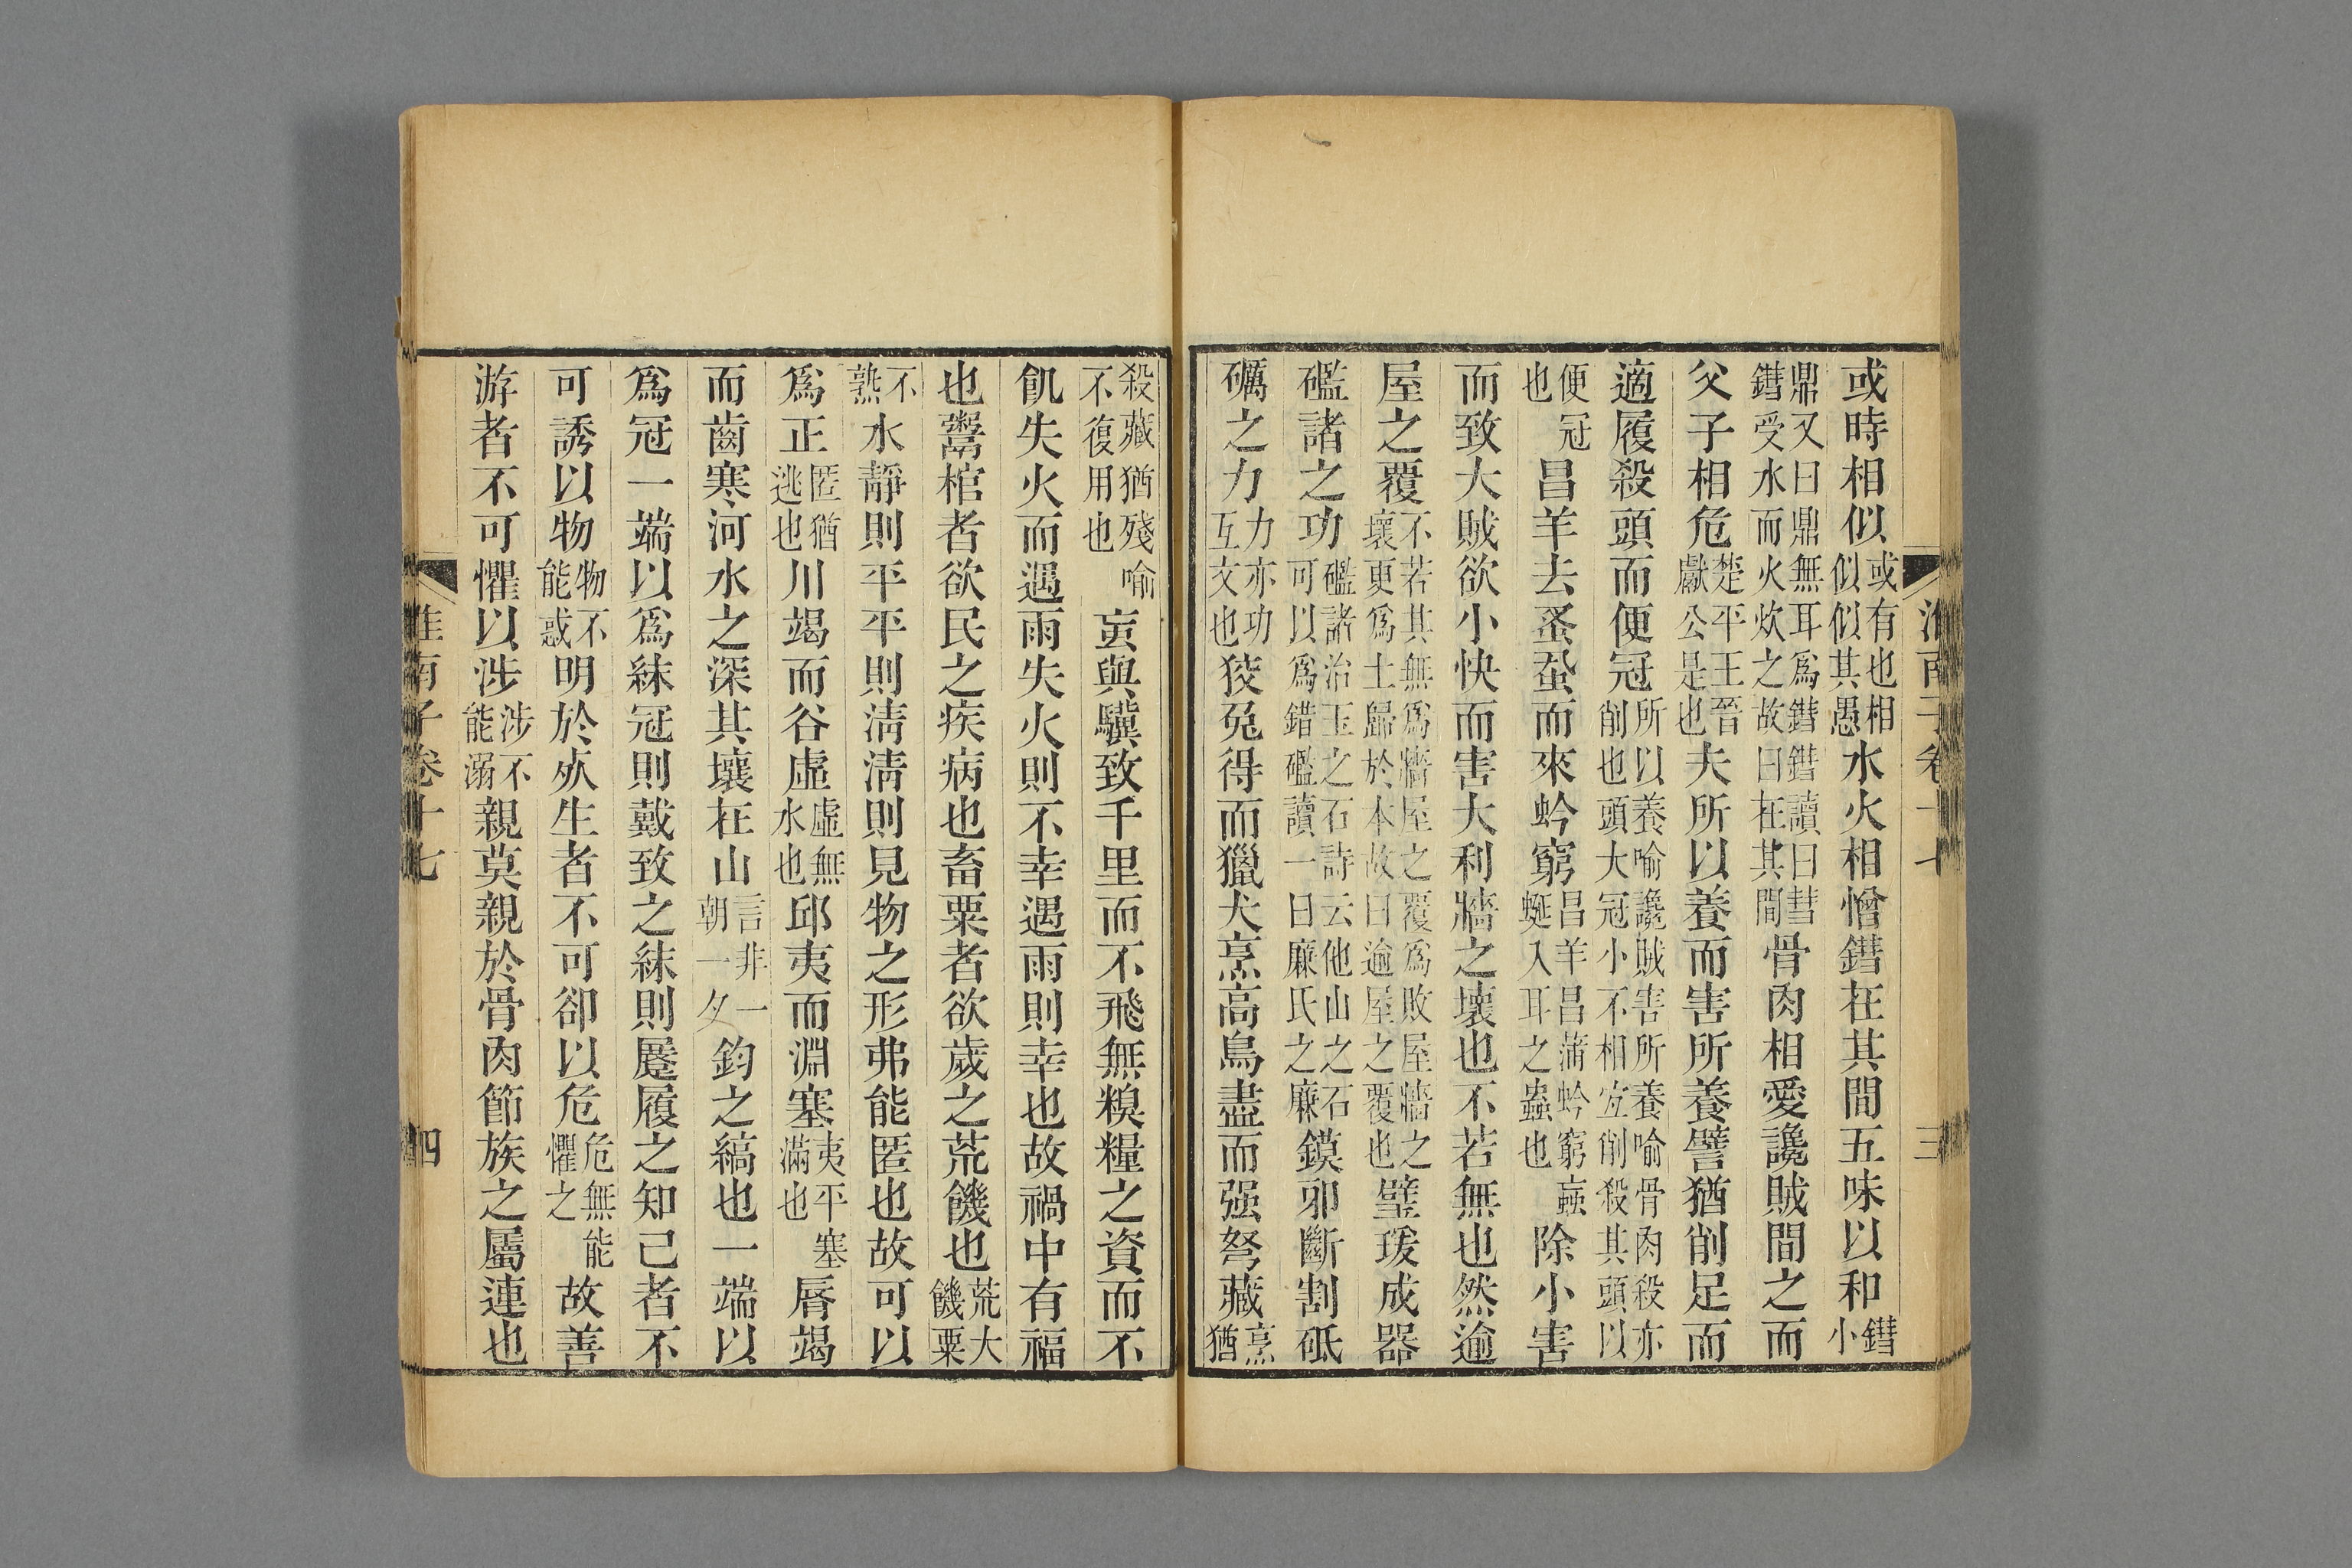 淮南子卷十七
三
或時相似或有也相似似其愚水火相憎鏏在其間五味以和鏏小
鼎又曰鼎無耳爲鏏鏏讀曰彗鏏受水而火炊之故曰在其間骨肉相愛讒賊間之而
父子相危楚平王晉獻公是也夫所以養而害所養譬猶削足而
適履殺頭而便冠所以養喻讒賊害所養喻骨肉殺亦削也頭大冠小不相宜削殺其頭以
便冠也昌羊去蚤蝨而來蚙窮昌羊昌蒲蚙窮䗍蜒入耳之蟲也除小害
而致大賊欲小快而害大利牆之壞也不若無也然逾
屋之覆不若其無爲牆屋之覆爲敗屋牆之壞更爲土歸於本故曰逾屋之覆也璧瑗成器
礛諸之功礛諸治玉之石詩云他山之石可以爲錯礛讀一曰廉氏之廉鏌邪斷割砥
礪之力力亦功互文也狡兔得而獵犬烹高鳥盡而强弩藏烹猶
殺藏猶殘喻不復用也䖟與驥致千里而不飛無糗糧之資而不
飢失火而遇雨失火則不幸遇雨則幸也故禍中有福
也鬻棺者欲民之疾病也畜粟者欲歲之荒饑也荒大饑粟
不熟水靜則平平則淸淸則見物之形弗能匿也故可以
爲正匿猶逃也川竭而谷虛虛無水也邱夷而淵塞夷平塞滿也脣竭
而齒寒河水之深其壤在山言非一朝一夕鈞之縞也一端以
爲冠一端以爲紣冠則戴致之紣則㞜履之知己者不
可誘以物物不能惑明於死生者不可卻以危危無能懼之故善
游者不可懼以涉涉不能溺親莫親於骨肉節族之屬連也
淮南子卷十七
四